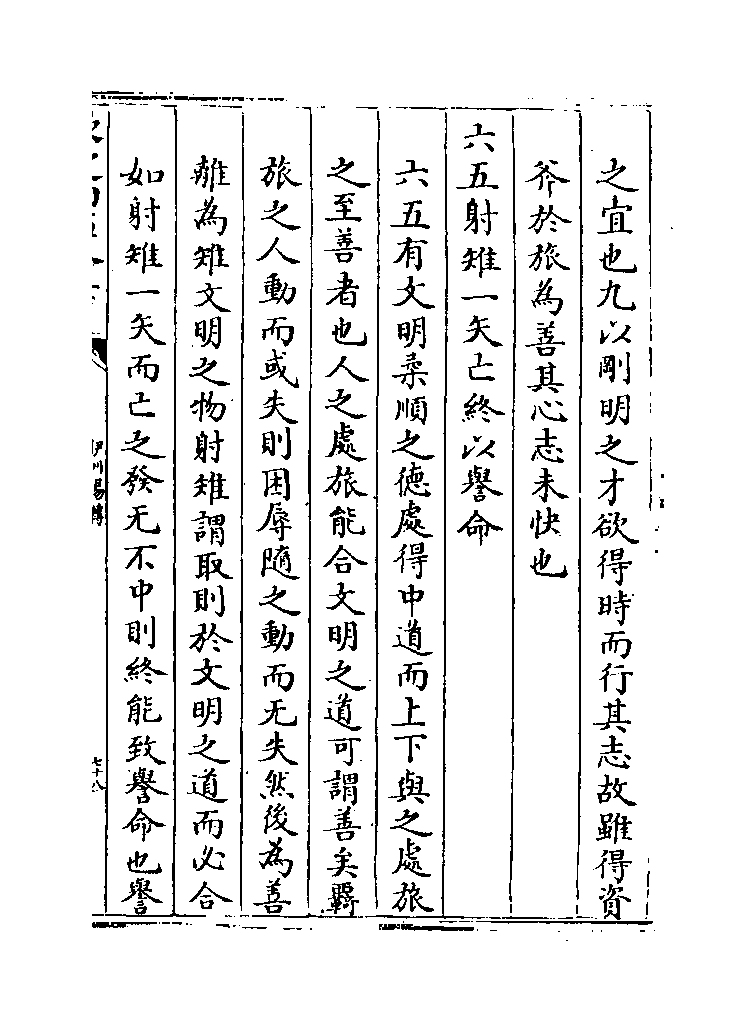 之宜也九以剛明之才欲得時而行其志故雖得資
斧於旅為善其心志未快也
六五射雉一矢亡終以譽命
六五有文明柔順之德處得中道而上下與之處旅
之至善者也人之處旅能合文明之道可謂善矣羇
旅之人動而或失則困辱隨之動而无失然後為善
離為雉文明之物射雉謂取則於文明之道而必合
如射雉一矢而亡之發无不中則終能致譽命也譽
伊川易傳
七十八